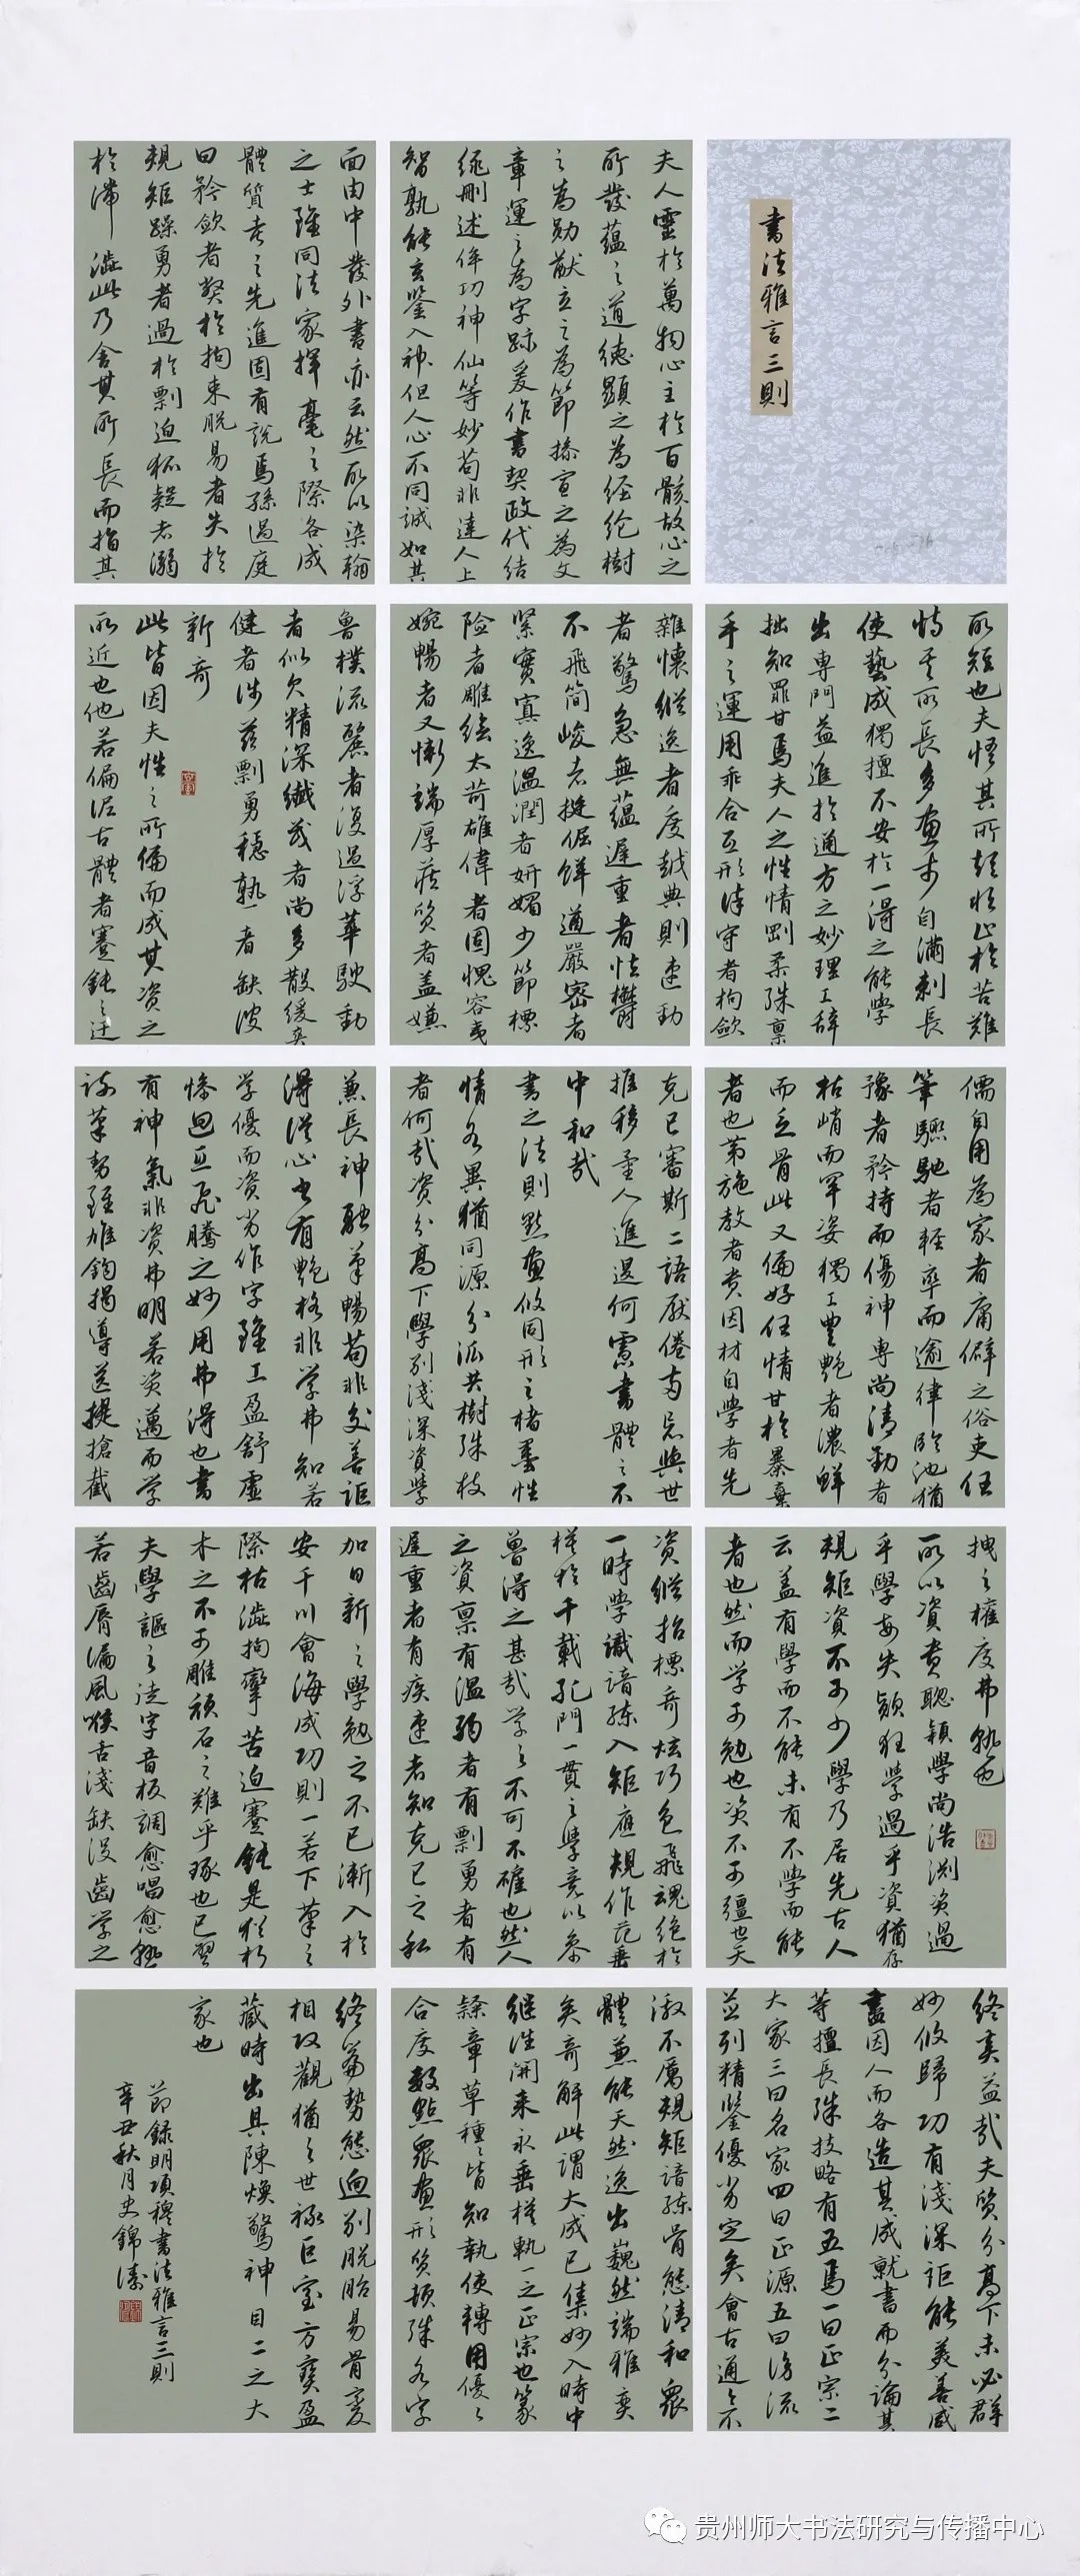 書法雅言三則
夫人靈於萬物心主於百骸故心之
所發蘊之道德顯之為經綸樹
之為勛猷立之為節操宣之為文
章運之為字跡爰作書契政代結
繩刪述侔功神仙等妙苟非達人上
智孰能玄鑒入神但人心不同誠如其
面由中發外書亦云然所以染翰
之士雖同法家揮毫之際各成
體質考之先進固有說焉孫過庭
曰矜斂者弊於拘束脫易者失於
規矩躁勇者過於剽迫狐疑者溺
於滯澁此乃舍其所長而指其
所短也夫悟其所短恒止於苦難
恃其所長多畫步自滿剌長
使藝成獨擅不安於一得之能學
出專門益進於通方之妙理工辭
拙知罪甘焉夫人之性情剛柔殊稟
手之運用乖合互形謹守者拘斂
雜懷縱逸者度越典則速動
者驚急無蘊遲重者怯鬱
不飛簡峻者挺倔鮮遒嚴密者
緊實寡逸溫潤者妍媚少節標
險者雕繪太苛雄偉者固愧容夷
婉暢者又慚端厚莊質者蓋嫌
魯樸流麗者復過浮華駛動
者似欠精深纖茂者尚多散緩爽
健者涉茲剽勇穩熟者缺彼
新奇
此皆因夫性之所偏而成其資之
所近也他若偏泥古體者蹇鈍之迂
儒自用為家者庸僻之俗吏任
筆驟馳者輕率而逾律臨池猶
豫者矜持而傷神專尚清勁者
枯峭而罕姿獨工豐艷者濃鮮
而乏骨此又偏好任情甘於暴棄
者也第施教者貴因材自學者先
克己審斯二語厭倦兩忘與世
推移量人進退何慮書體之不
中和哉
書之法則點畫攸同形之楮墨性
情各異猶同源分派共樹殊枝
者何哉資分高下學別淺深資學
兼長神融筆暢苟非交善詎
得從心書有體格非學弗知若
學優而資劣作字雖工盈舒虛
慘迴互飛騰之妙用弗得也書
有神氣非資弗明若資邁而學
疎筆勢雖雄鉤揭導送提搶截
拽之權度弗熟也
所以資貴聰穎學尚浩淵資過
乎學每失顛狂學過乎資猶存
規矩資不可少學乃居先古人
云蓋有學而不能未有不學而能
者也然而学可勉也資不可彊也天
資縱抬標奇炫巧色飛魂絕於
一時学識諳練入矩應規作範垂
模於千載孔門一貫之學竟以參
魯得之甚哉学之不可不確也然人
之資稟有溫弱者有剽勇者有
遲重者有疾速者知克己之私
加日新之學勉之不已漸入於
安千川會海成功則一若下筆之
際枯澁拘攣苦迫蹇鈍是猶朽
木之不可雕頑石之難乎琢也已譬
夫學謳之徒字音板調愈唱愈熟
若齒唇漏風喉舌淺缺沒齒学之
終奚益哉夫質分高下未必群
妙攸歸功有淺深詎能美善咸
盡因人而各造其成就書而分論其
等擅長殊技略有五焉一曰正宗二
大家三曰名家四曰正源五曰傍流
並列精鑒優劣定矣會古通今不
激不厲規矩諳練骨態清和眾
體兼能天然逸出巍然端雅奕
矣奇解此謂大成已集妙入時中
繼往開來永垂模軌一之正宗也篆
隸章草種種皆知執使轉用優優
合度數點眾畫形質頓殊各字
終篇勢態迥別脫胎易骨變
相改觀猶之世祿巨室方寶盈
藏時出具陳煥驚神目二之大
家也
節錄明項穆書法雅言三則
辛丑秋月史錦濤
贵州师大书法研究与传播中心